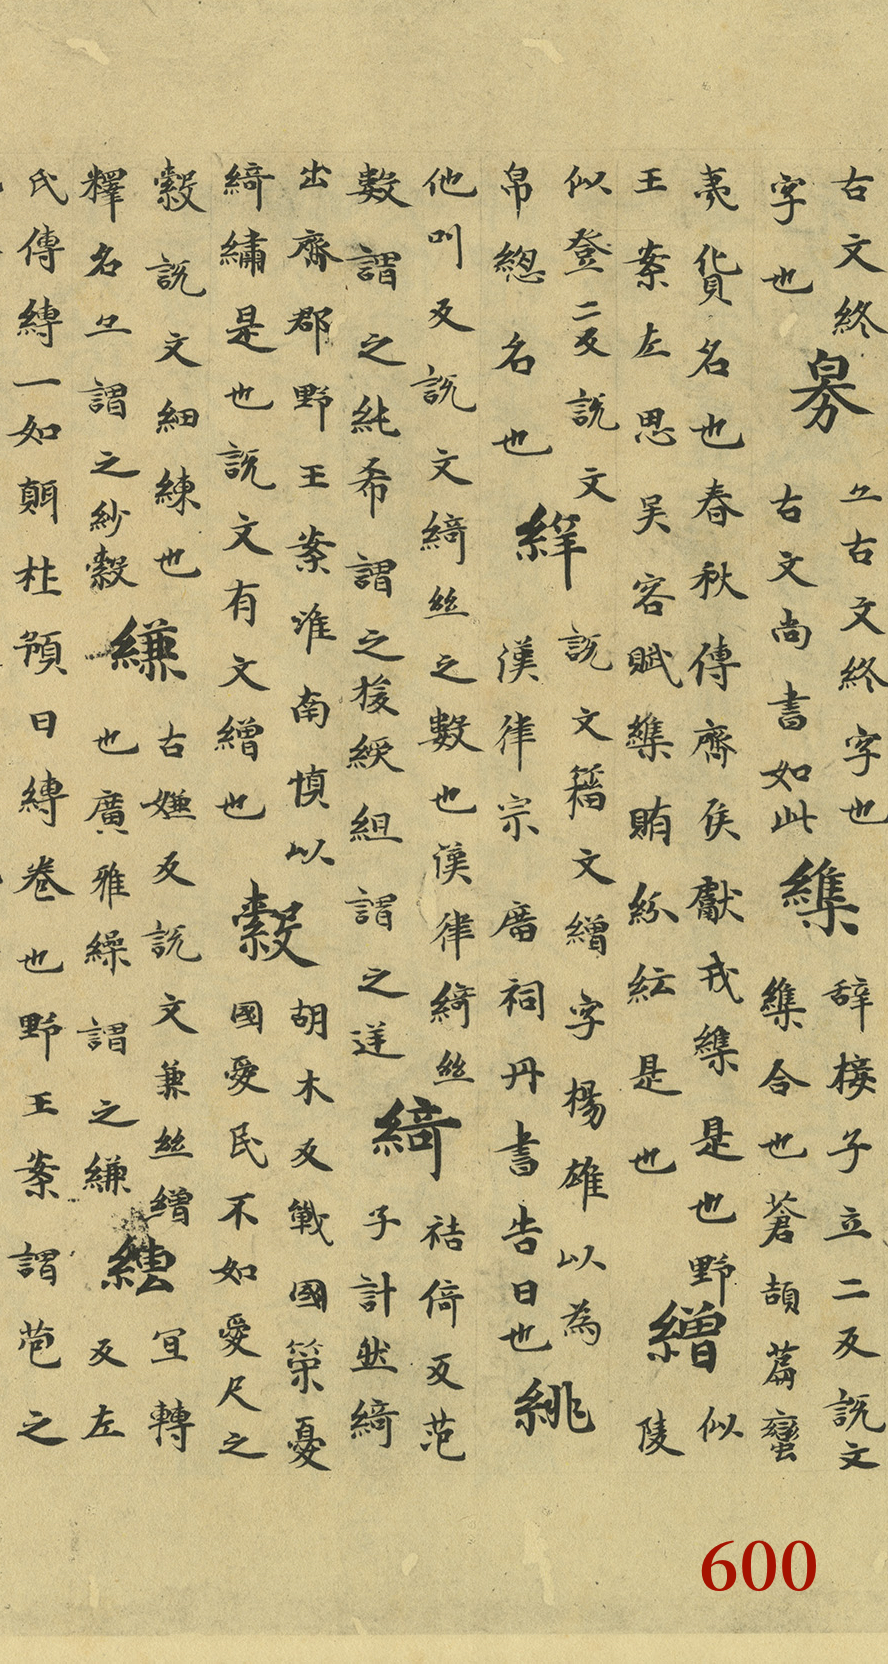 古文終
字也
㒱
亼古文終字也
古文尚書如此
䌖
辞接子立二反説文
䌖合也蒼頡篇蠻
夷貨名也春秋傳齊侯獻戎䌖是也野
王案左思吴客賦䌖賄紛紜是也
繒
似
陵
似登二反説文
帛緫名也
絴
説文籀文繒字楊雄以為
漢律宗廟祠丹書告日也
絩
他叫反説文綺丝之數也漢律綺丝
數謂之純希謂之緩組謂之
綺
祛倚反范
子計然綺
出齊郡野王案淮南慎以
綺繡是也説文有文繒也
縠
胡木反戰國策憂
國愛民不如愛尺之
縠説文細練也
釋名亦謂之紗縠
縑
古嫌反説文兼丝繒
也廣雅繰謂之縑
縳
宜轉
反左
氏傳縳一如顛杜預曰縳卷也野王案謂苞之
600